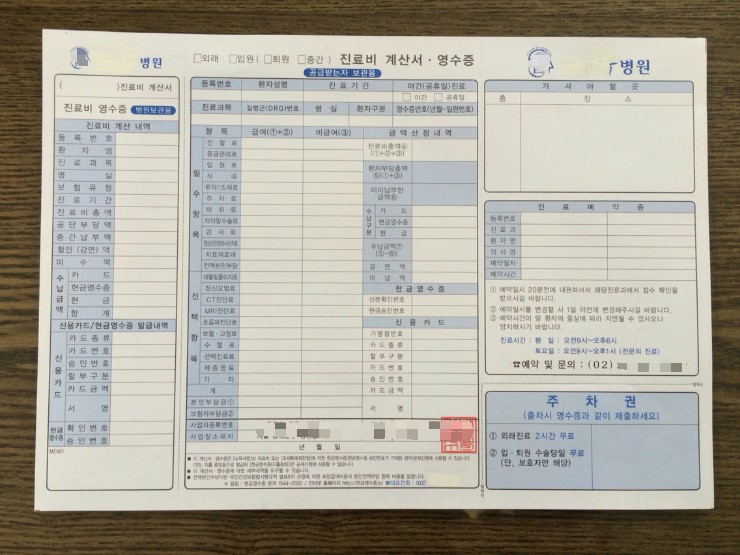 병원
( )진료비 계산서
진료비 영수증 병원보관용
진료비 계산 내역
등록번호
환자명
진료과목
병실
보험유형
진료기간
진료비총액
공단부담액
중간납부액
할인(감면)액
미수액
수납금액
카드
현금영수증
현금
합계
신용카드/현금영수증 발급내역
신용카드
카드종류
카드번호
승인번호
할부구분
카드금액
서명
현금영수증
확인번호
승인번호
MEMO
□외래 □입원( □퇴원 □중간 ) 진료비 계산서·영수증
공급받는자 보관용
등록번호 환자성명 진료기간 야간(공휴일)진료
□야간 □공휴일
진료과목 질병군(DRG)번호 병실 환자구분 영수증번호(년월-일련번호)
항목 급여(①+②) 비급여(③) 금액산정내역
필수항목
진찰료
응급관리료
입원료
식대
투약/조제료
주사료
마취료
처치및수술료
검사료
치료재료대
전액본인부담
재활및물리치료
선택항목
정신요법료
CT진단료
MRI진단료
초음파진단료
보철·교정료
수혈료
선택진료료
제증명료
기타
계
본인부담금①
보험자부담금②
진료비총액④
(①+②+③)
환자부담총액
⑤(①+③)
이미납부한
금액⑥
수납구분
카드
현금영수증
현금
수납금액⑦
(⑤-⑥)
감면액
미납액
현금영수증
신분확인번호
현금승인번호
신용카드
가맹점번호
카드종류
할부구분
카드번호
승인번호
카드금액
서명
사업자등록번호
사업장소재지
년 월 일
병원
가셔야할곳
층 장소
진료예약증
등록번호
진료과
환자명
의사명
예약일자
예약시간
① 예약일시 20분전에 내원하셔서 해당진료과에서 접수 확인을
받으시길 바랍니다.
② 예약일시를 변경할 시 1일 이전에 변경해주시길 바랍니다.
③ 예약시간이 앞 환자의 증상에 따라 지연될 수 있사오니
양지하시기 바랍니다.
진료시간 : 평 일 : 오전9시~오후6시
토요일 : 오전9시~오후1시 (전문의 진료)
☎예약 및 문의 : (02)
주차권
(출차시 영수증과 같이 제출하세요)
① 외래진료 2시간 무료
② 입·퇴원 수술당일 무료
(단, 보호자만 해당)